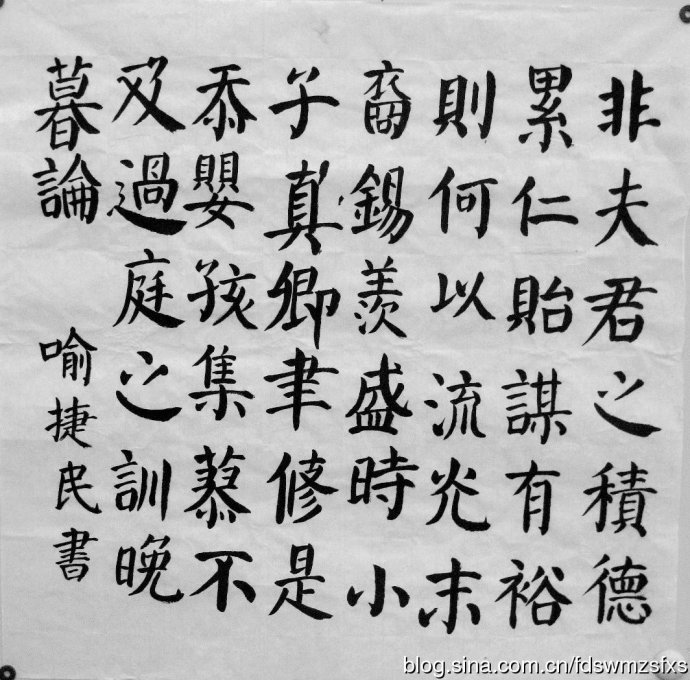 非夫君之積德
累仁貽謀有裕
則何以流光末
裔錫羨盛時小
子真卿聿修是
忝嬰孩集蓼不
及過庭之訓晚
暮論
喻捷民書
blog.sina.com.cn/fdswmzsfxs